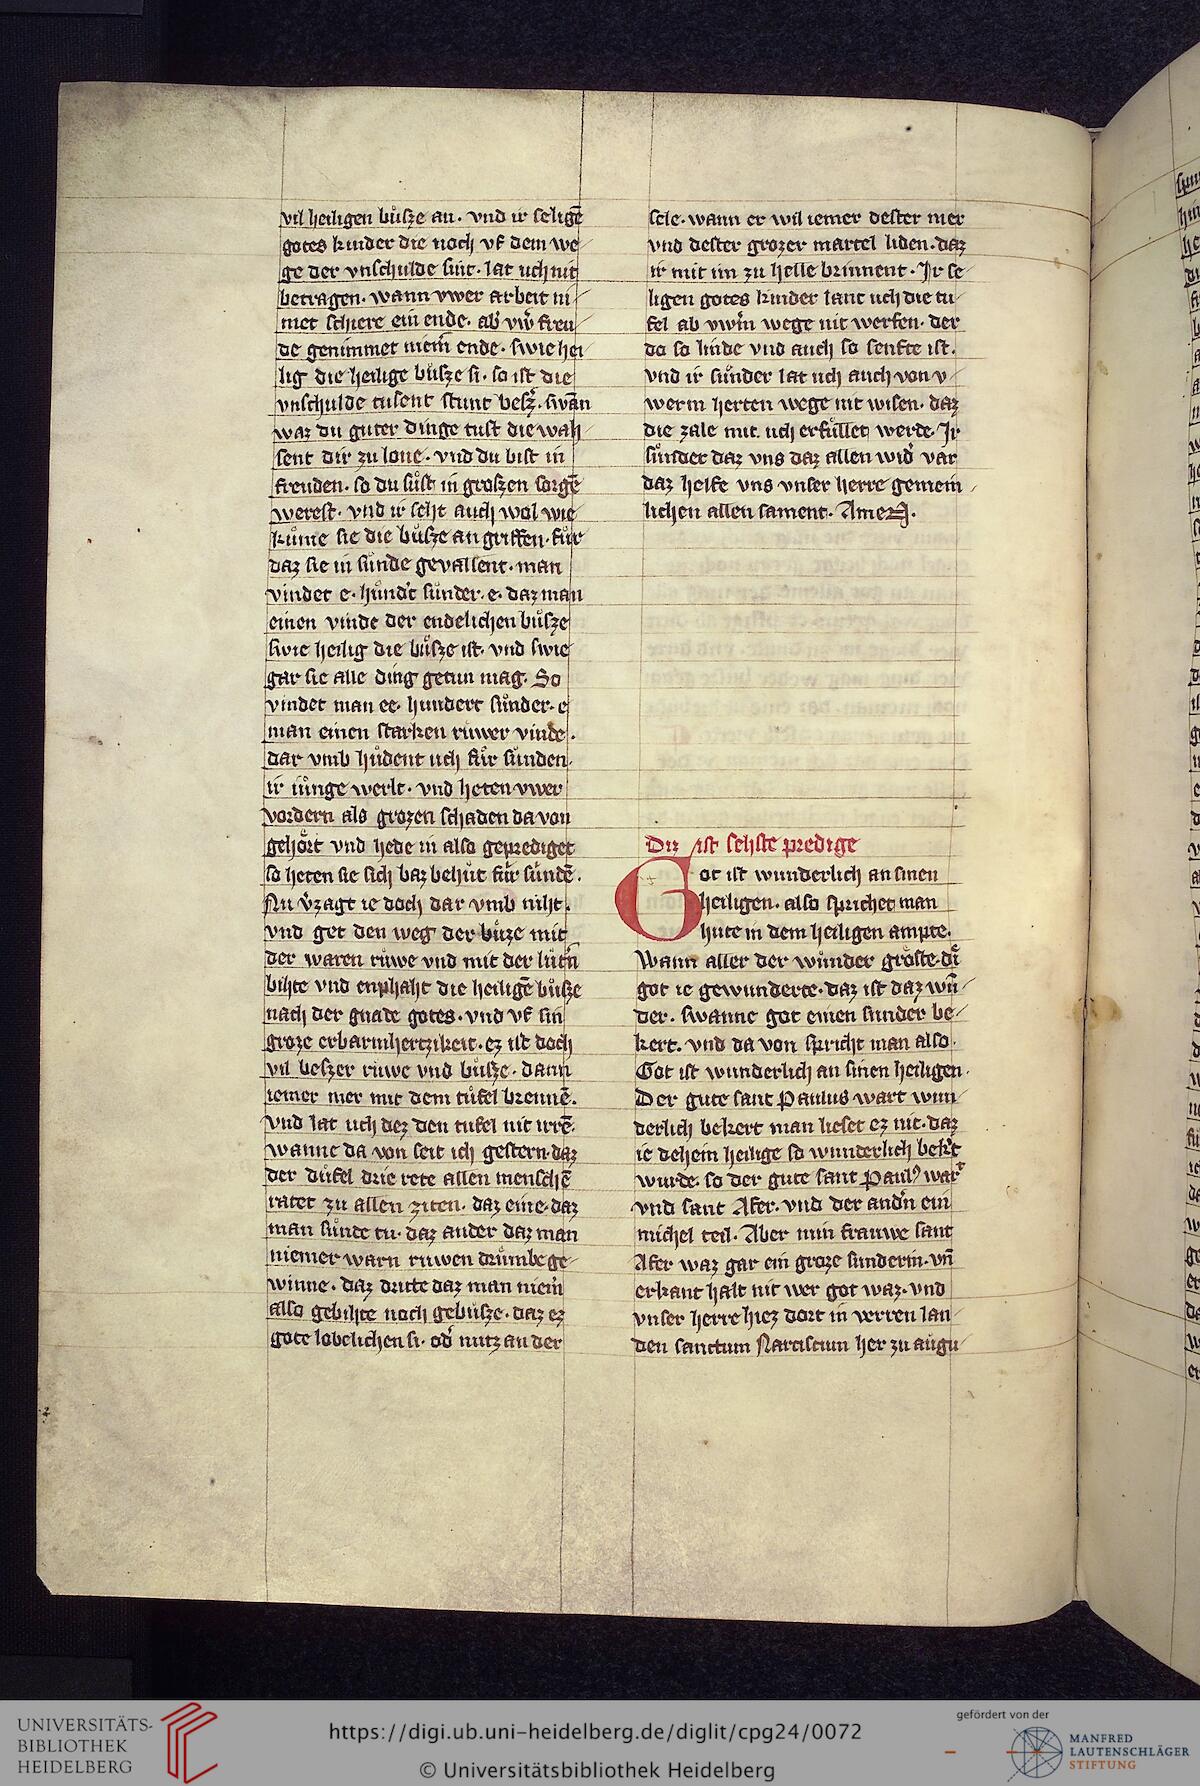 vil heiligen bůsze an. vnd ir seligē
gotes kinder die noch vf dem we-
ge der vnschulde sint. lat uch nit
betragen. wann vwer arbeit ni-
met schiere ein ende. ab' vw' freu-
de genimmet niem̄ ende. swie hei-
lig die heilige bůsze si. so ist die
vnschulde tusent stunt besz'. swan
waz du guter dinge tust die wah-
sent dir zu lone. vnd du bist in
freuden. so du sůst in groszen sorgē
werest. vnd ir seht auch wol wie
kume sie die bůsze an griffen. fůr
daz sie in sůnde gevallent. man
vindet e. hund't sůnder. e. daz man
einen vinde der endelichen bůsze
swie heilig die bůsze ist. vnd swie
gar sie alle ding getun mag. So
vindet man ee. hundert sůnder. e
man einen starken růwer vinde.
dar vmb hůdent uch fůr sunden.
ir iunge werlt. vnd heten vwer
vordern als grozen schaden da von
gehört vnd hede in also geprediget
so heten sie sich baz behut fůr sůndē.
Nu v'zagt ie doch dar vmb niht.
vnd get den weg der bůze mit
der waren růwe vnd mit der lut'n
bihte vnd enphaht die heiligē bůsze
nach der gnade gotes. vnd vf sin
groze erbarmhertzikeit. ez ist doch
vil beszer růwe vnd bůsze. dann
iemer mer mit dem tůfel brennē.
Vnd lat uch dez den tufel nit irrē.
wanne da von seit ich gestern. daz
der důfel drie rete allen menschē
ratet zu allen ziten. daz eine. daz
man sůnde tu. daz ander daz man
niemer warn ruwen drumbe ge-
winne. daz dritte daz man niem̄
also gebihte noch gebůsze. daz ez
gote lobelichen si. od' nutz an der
sele. wann er wil iemer dester mer
vnd dester grozer martel liden. daz
ir mit im zu helle brinnent. Ir se-
ligen gotes kinder lant uch die tu-
fel ab vwr̄m wege nit werfen. der
do so linde vnd auch so senfte ist.
vnd ir sůnder lat uch auch von v-
werm herten wege nit wisen. daz
die zale mit uch erfullet werde. Ir
sunder daz vns daz allen wid' var
daz helfe vns vnser herre gemein-
lichen allen sament. Amen.
Diz ist sehste predige
Got ist wunderlich an sinen
heiligen. also sprichet man
hute in dem heiligen ampte.
Wann aller der wůnder gröste. dǎ
got ie gewunderte. daz ist daz wū-
der. swanne got einen sunder be-
kert. vnd da von spricht man also.
Got ist wunderlich an sinen heiligen.
Der gute sant Paulus wart wun-
derlich bekert man lieset ez nit. daz
ie dehein heilige so wunderlich bek't
wurde. so der gute sant Paul9 wart
vnd sant Afer. vnd der and'n ein
michel teil. Aber min frauwe sant
Afer waz gar ein groze sunderin. vn̄
erkant halt nit wer got waz. vnd
vnser herre hiez dort in verren lan-
den sanctum Narciscium her zu augu-
UNIVERSITÄTS-
BIBLIOTHEK
HEIDELBERG
https://digi.ub.uni-heidelberg.de/diglit/cpg24/0072
© Universitätsbibliothek Heidelberg
gefördert von der
MANFRED
LAUTENSCHLÄGER
STIFTUNG